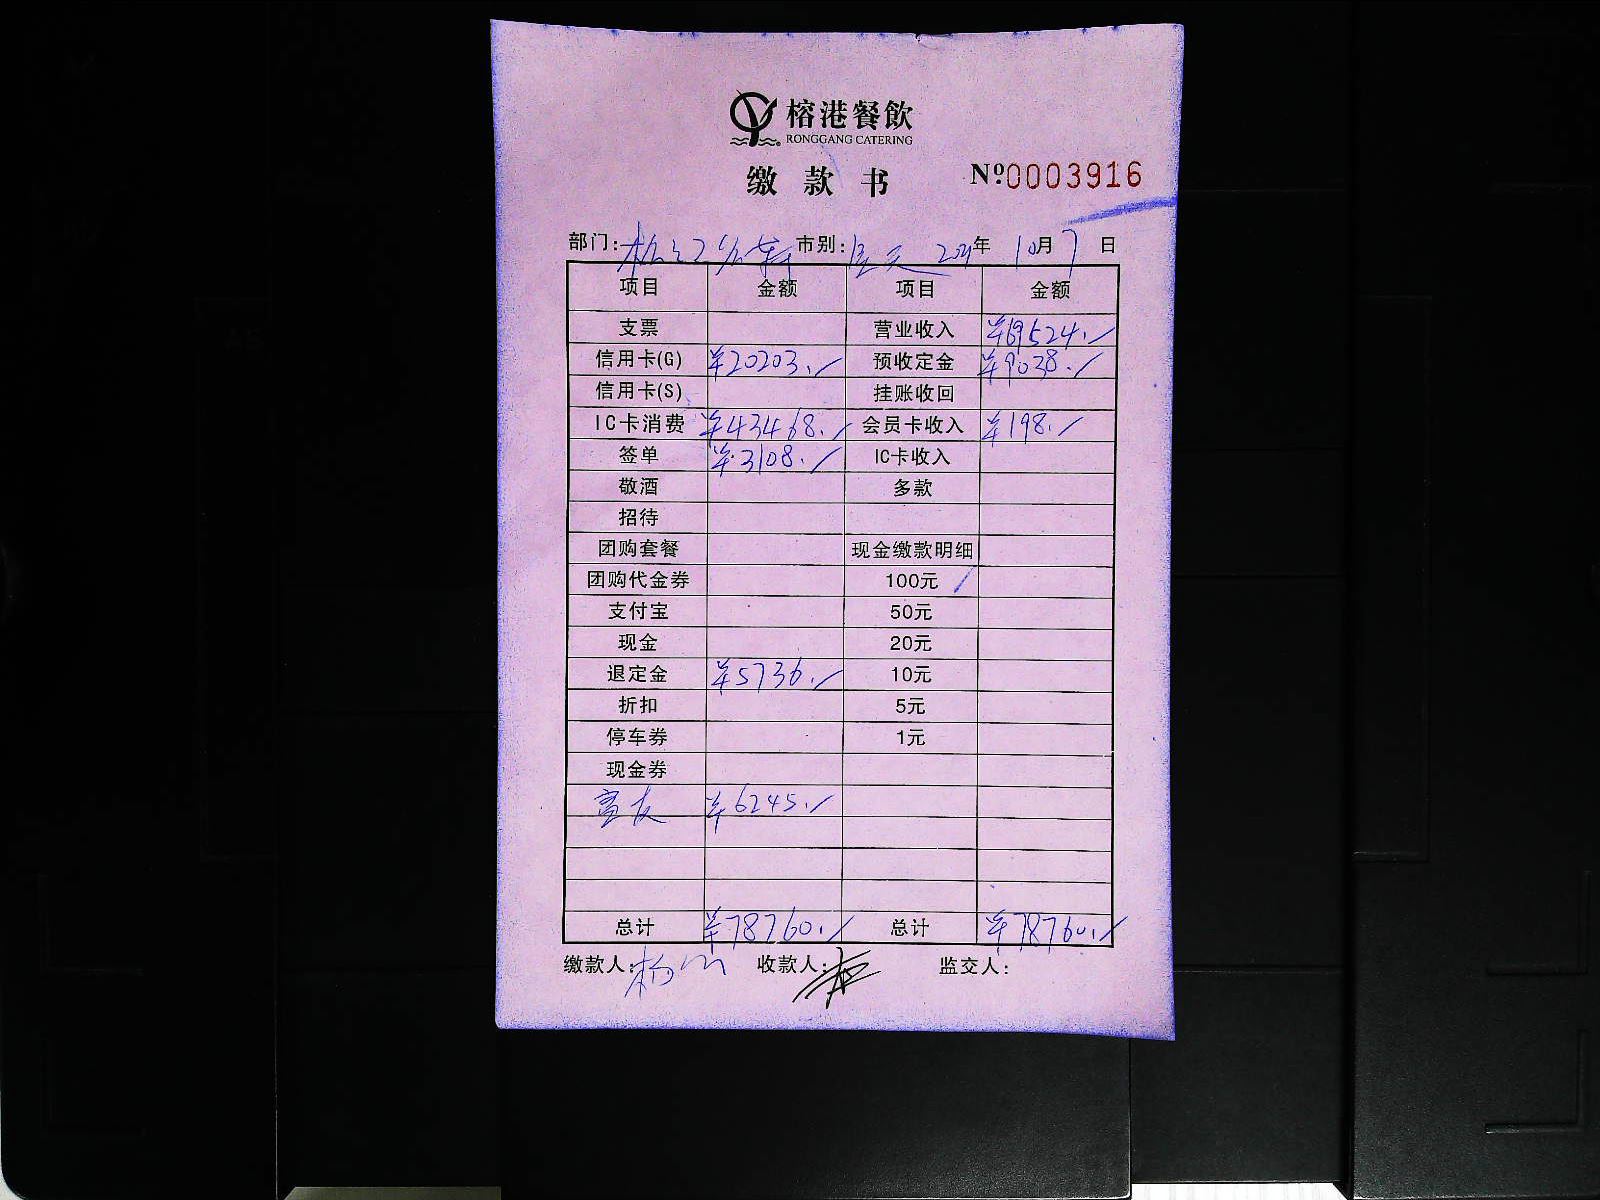 榕港餐飲
RONGGANG CATERING
缴款书 Nº0003916
部门: 市别: 全天 年 10月7日
项目 金额 项目 金额
支票 营业收入 ¥69524.
信用卡(G) ¥20203. 预收定金 ¥9038.
信用卡(S) 挂账收回
IC卡消费 ¥43468. 会员卡收入 ¥198.
签单 ¥3108. IC卡收入
敬酒 多款
招待
团购套餐 现金缴款明细
团购代金券 100元
支付宝 50元
现金 20元
退定金 ¥5736. 10元
折扣 5元
停车券 1元
现金券
¥6245.
总计 ¥78760. 总计 ¥78760.
缴款人: 收款人: 监交人: